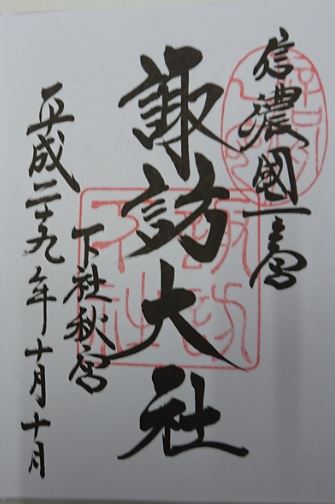 信濃國一之宮
諏訪大社
下社秋宮
平成二十九年十月十日